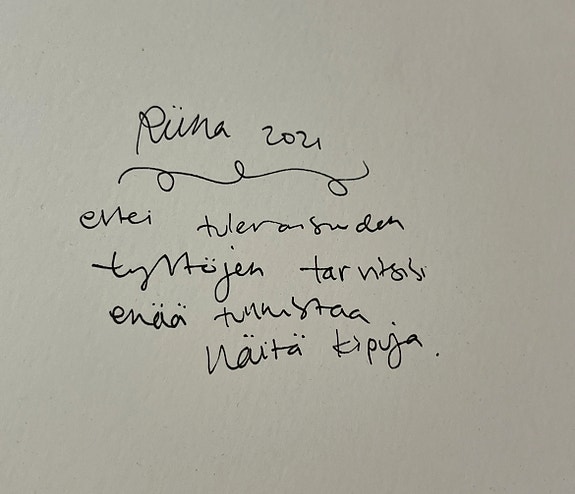 Riina 2021
ettei tulevaisuuden
tyttöjen tarvitsisi
enää tunnistaa
näitä kipuja.